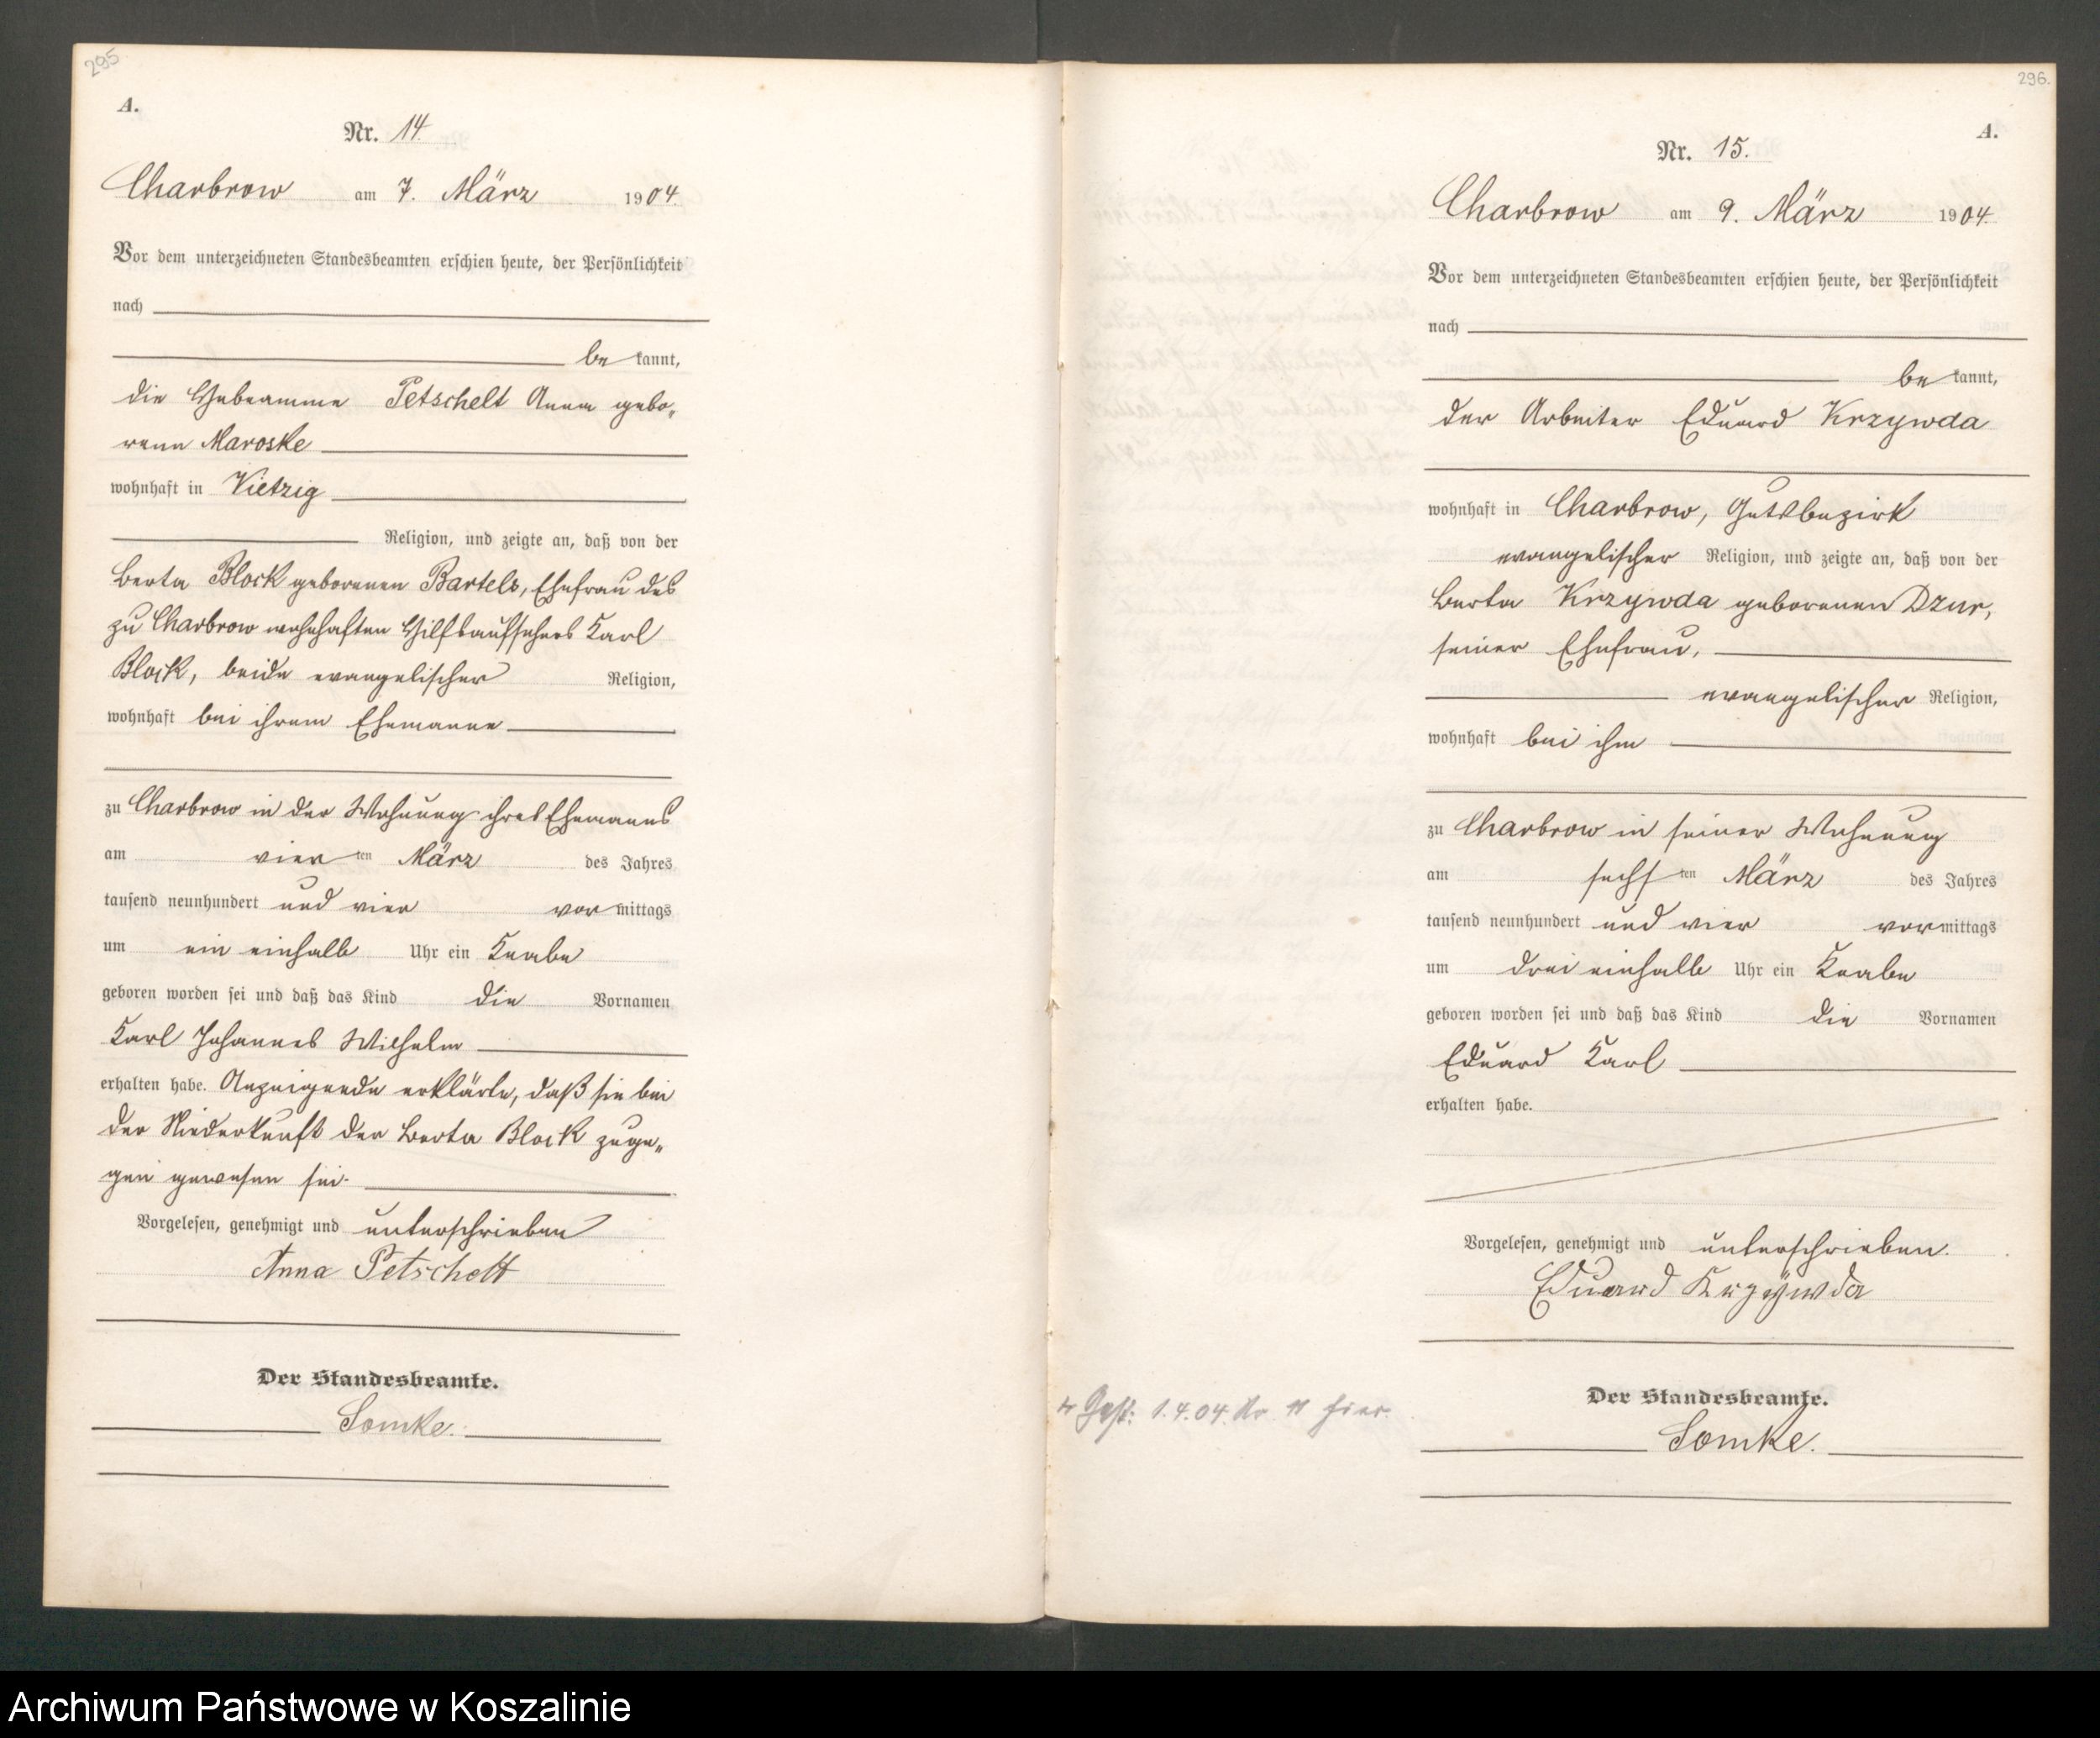 295
A.
Nr. 14.
Charbrow am 7. März 1904.
Vor dem unterzeichneten Standesbeamten erschien heute, der Persönlichkeit
nach
be kannt,
die Hebeamme Petschelt Anna gebo„
rene Maroske
wohnhaft in Vietzig
Religion, und zeigte an, daß von der
Berta Block geborenen Bartels, Ehefrau des
zu Charbrow wohnhaften Hilfsaufsehers Karl
Block, beide evangelischer Religion,
wohnhaft bei ihrem Ehemanne
zu Charbrow in der Wohnung ihres Ehemanns
am vier ten März des Jahres
tausend neunhundert und vier vor mittags
um ein einhalb Uhr ein Knabe
geboren worden sei und daß das Kind die Vornamen
Karl Johannes Wilhelm
erhalten habe. Anzeigende erklärte, daß sie bei
der Niederkunft der Berta Block zuge„
gen gewesen sei.
Vorgelesen, genehmigt und unterschrieben
Anna Petschelt
Der Standesbeamte.
Lomke.
296.
A.
Nr. 15.
Charbrow am 9. März 1904.
Vor dem unterzeichneten Standesbeamten erschien heute, der Persönlichkeit
nach
be kannt,
der Arbeiter Eduard Krzywda
wohnhaft in Charbrow, Gutsbezirk
evangelischer Religion, und zeigte an, daß von der
Berta Krzywda geborenen Dzur,
seiner Ehefrau,
evangelischer Religion,
wohnhaft bei ihm
zu Charbrow in seiner Wohnung
am sechs ten März des Jahres
tausend neunhundert und vier vor mittags
um drei einhalb Uhr ein Knabe
geboren worden sei und daß das Kind die Vornamen
Eduard Karl
erhalten habe.
Vorgelesen, genehmigt und unterschrieben.
Eduard Krzÿwda
Gest: 1.4.04. Nr 11 hier.
Der Standesbeamte.
Lomke.
Archiwum Państwowe w Koszalinie